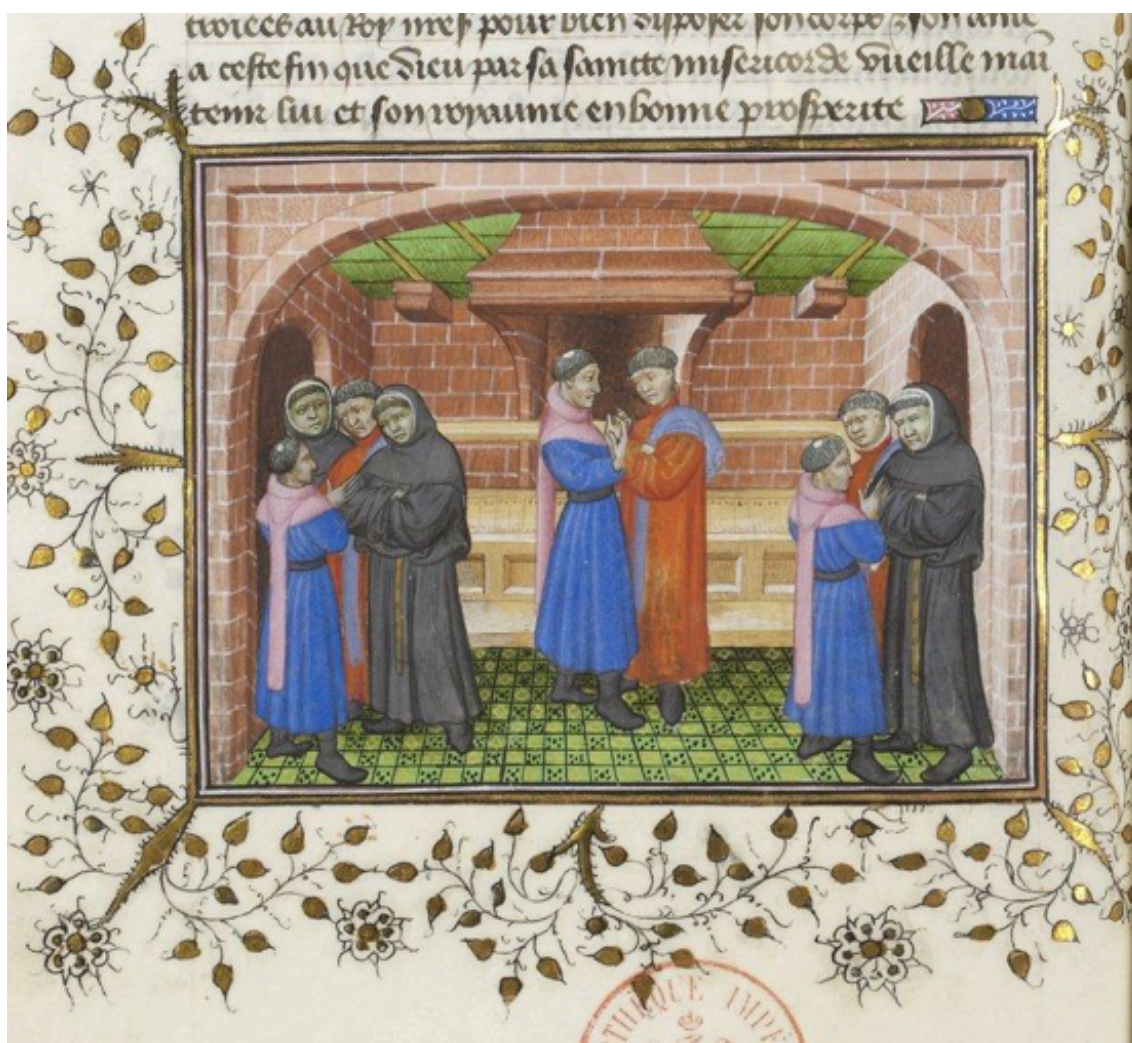 troiees au Roy nres pour bien disposer son corps & son ame
a ceste fin que dieu par sa saincte misericorde vueille mai
tenir lui et son royaume en bonne prosperite
THÈQUE IMPÉ